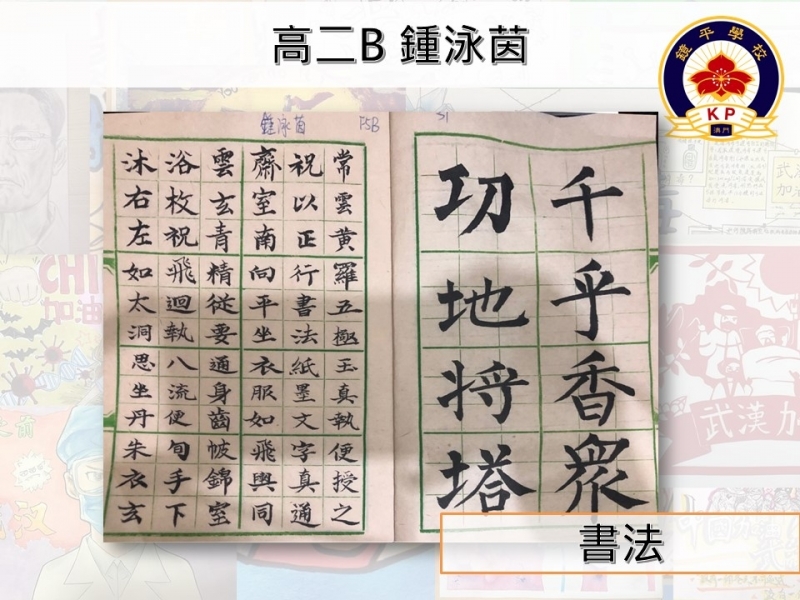 高二B 鍾泳茵
鏡平學校
KP
澳門
鍾泳茵 F5B
千乎香眾
功地將塔
常雲黃羅五極玉真執便授之
祝以正行書法紙墨文字真通
齋室南向平坐衣服如飛輿同
雲玄青精從要通身齒帔錦室
浴枚祝飛迴執八流便旬手下
沐右左如太洞思坐丹朱衣玄
CHI
加油
武漢加
書法